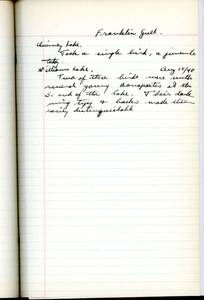 Franklin Gull.
Chimney Lake.
Took a single bird, a juvenile
Williams Lake. Aug 15/40
Two of these birds were with
several young Bonapartes at the
S. end of the lake. Their dark
wing tips & backs made them
easily distinguishable